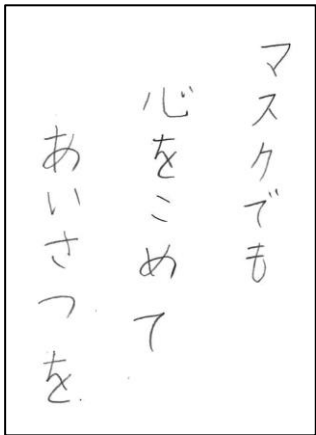 マスクでも
心をこめて
あいさつを